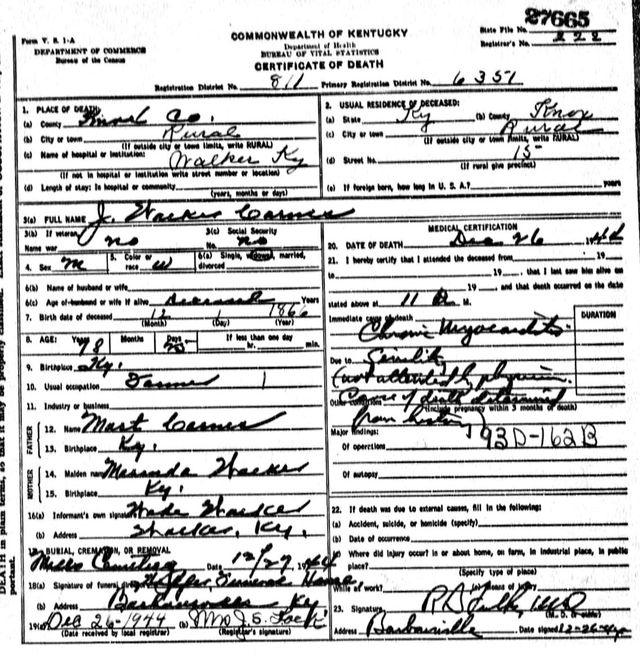 27665
Form V. S. 1-A
DEPARTMENT OF COMMERCE
Bureau of the Census
COMMONWEALTH OF KENTUCKY
Department of Health
BUREAU OF VITAL STATISTICS
CERTIFICATE OF DEATH
State File No.
Registrar's No. 222
Registration District No. 811 Primary Registration District No. 6351
1. PLACE OF DEATH
(a) County Knox Co.
(b) City or town Rural
(If outside city or town limits, write RURAL)
(c) Name of hospital or institution: Walker Ky
(If not in hospital or institution write street number or location)
(d) Length of stay: In hospital or community
(years, months or days)
2. USUAL RESIDENCE OF DECEASED:
(a) State Ky (b) County Knox
(c) City or town Rural
(If outside city or town limits, write RURAL)
(d) Street No. 15
(If rural give precinct)
(e) If foreign born, how long in U. S. A.? years
3(a) FULL NAME J. Walker Carnes
3(b) If veteran, Name war no
3(c) Social Security No. no
4. Sex m
5. Color or race w
6(a) Single, widowed, married, divorced
6(b) Name of husband or wife
6(c) Age of husband or wife if alive Deceased Years
7. Birth date of deceased 12 1 1866
(Month) (Day) (Year)
8. AGE: Years 78 Months Days 25 If less than one day hr. min.
9. Birthplace Ky.
10. Usual occupation Farmer
11. Industry or business
FATHER
12. Name Mart Carnes
13. Birthplace Ky.
MOTHER
14. Maiden name Walker
15. Birthplace Ky.
16(a) Informant's own signature Wade Walker
(b) Address Walker, Ky.
17. BURIAL, CREMATION, OR REMOVAL
Mills Cemetery Date 12/27 1944
18(a) Signature of funeral director Funeral Home
(b) Address Barbourville Ky
19(a) Dec 26-1944 (b) Mrs J. S. Lock
(Date received by local registrar) (Registrar's signature)
MEDICAL CERTIFICATION
20. DATE OF DEATH Dec 26 1944
21. I hereby certify that I attended the deceased from , 19
to , 19 , that I last saw him alive on
, 19 , and that death occurred on the date
stated above at 11 M.
Immediate cause of death
DURATION
Chronic Myocarditis
Due to Senility
(not attended by physician.
Cause of death determined
Other conditions
(Include pregnancy within 3 months of death)
from history)
Major findings: 93D-162B
Of operations
Of autopsy
22. If death was due to external causes, fill in the following:
(a) Accident, suicide, or homicide (specify)
(b) Date of occurrence
(c) Where did injury occur? in or about home, on farm, in industrial place, in public
place?
(Specify type of place)
While at work? Means of
23. Signature
Address Barbourville Date signed 12-26-44
DEATH in plain terms, so that it may be properly classified.
portant.